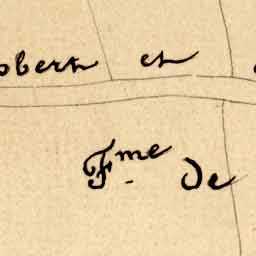 obert et
Fme De